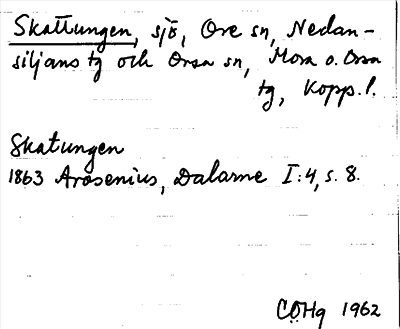 Skattungen, sjö, Ore sn, Nedan-
siljans tg och Orsa sn, Mora o. Orsa
tg, Kopp. l.
Skatungen
1863 Arosenius, Dalarne I:4, s. 8.
CÖHg 1962